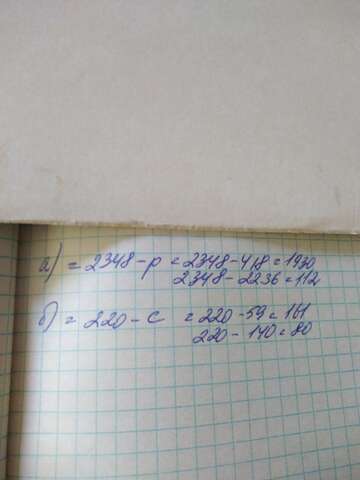 а) = 2348 - p = 2348 - 418 = 1930
2348 - 2236 = 112
б) = 220 - c = 220 - 59 = 161
220 - 140 = 80